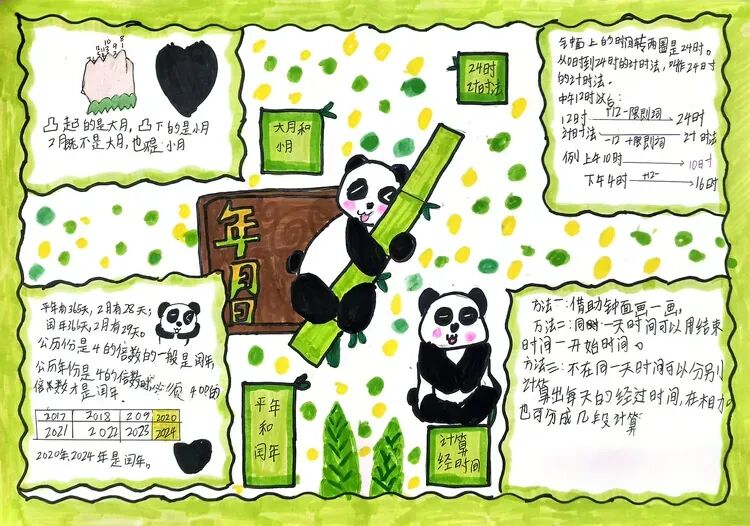 凸起的是大月,凸下的是小月
2月既不是大月,也不是小月
大月和
小月
24时
计时法
钟面上的时间转两圈是24时。
从0时到24时的计时法,叫作24时
的计时法。
中午12时以后:
12时 +12-限制词 24时
计时法 -12+限制词 计时法
例 上午10时 10时
下午4时 +12 16时
年月日
平年有365天,2月有28天;
闰年366天,2月有29天。
公历份是4的倍数的一般是闰年,
公历年份是4的倍数时 必须 400的
倍数才是闰年。
2017 2018 209 2020
2021 2022 2023 2024
2020年2024年是闰年。
平年
和
闰年
计算
经时间
方法一:借助钟面画一画。
方法二:同时一天时间可以用结束
时间一开始时间。
方法三:不在同一天时间可以分别
计算
算出每天的经过时间,在相加
也可分成几段计算